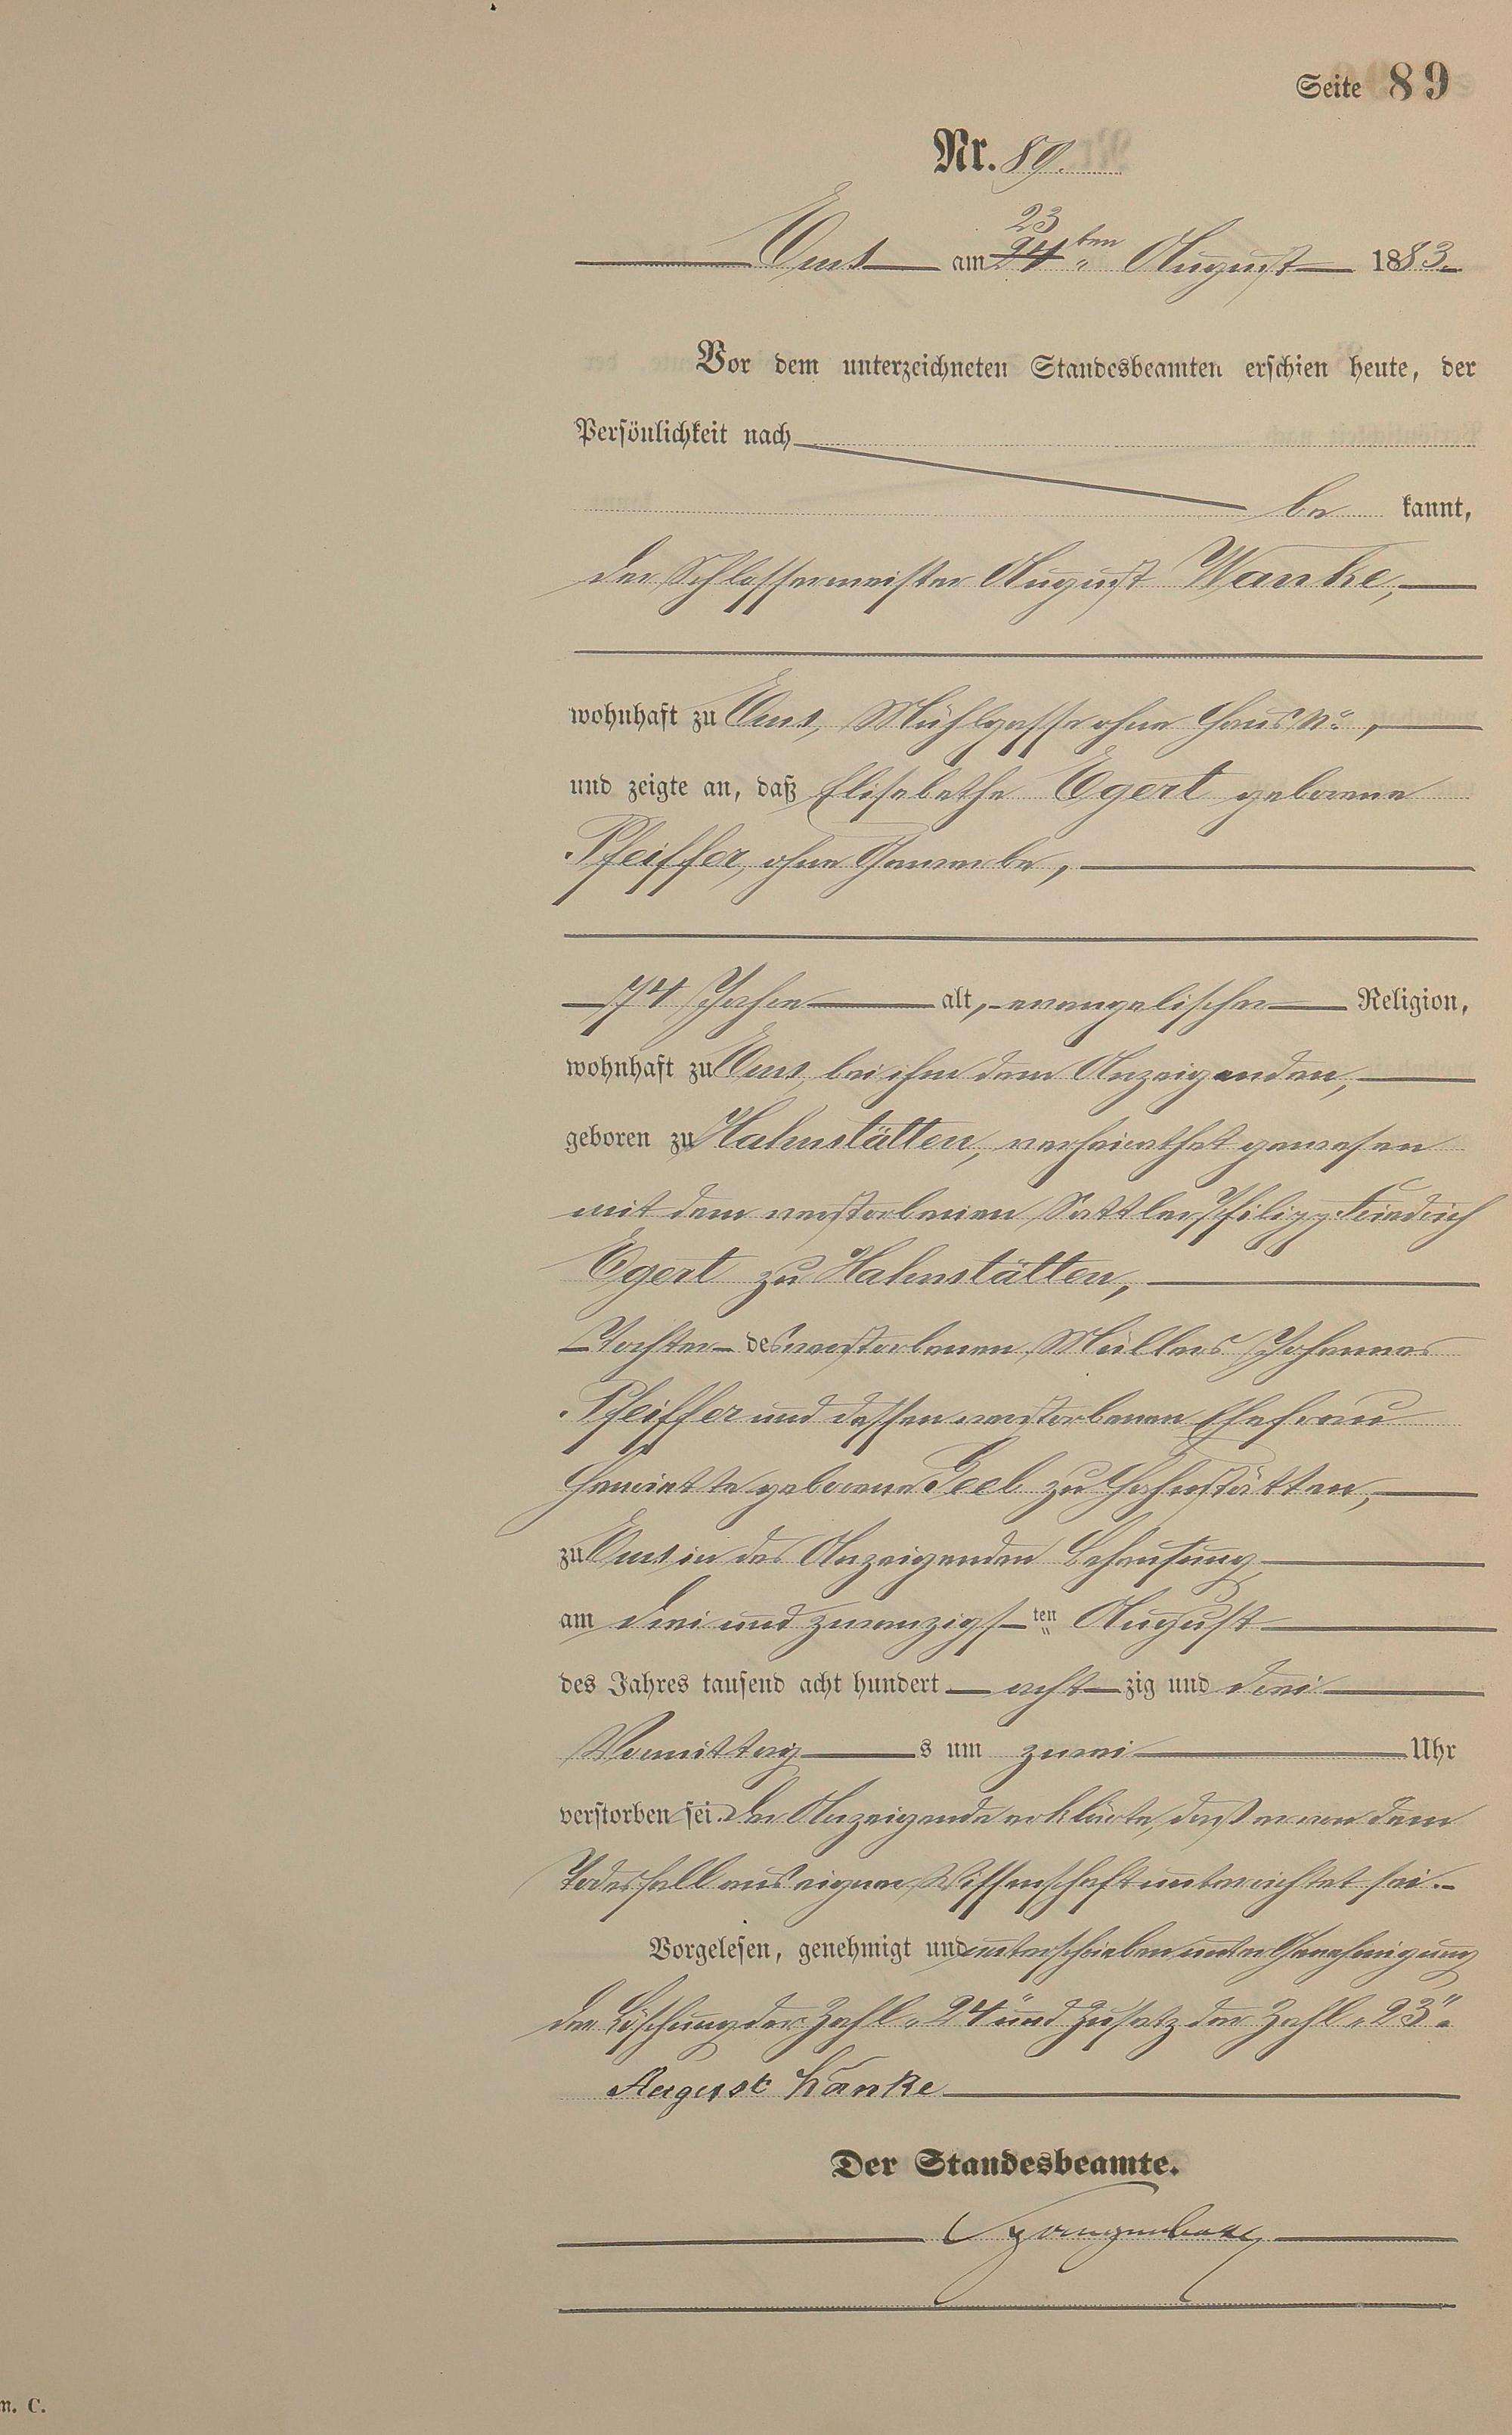 Seite 89
Nr. 89.
Ems am 23
24ten August 1883.
Vor dem unterzeichneten Standesbeamten erschien heute, der
Persönlichkeit nach
be kannt,
der Schlossermeister August Wanke,
wohnhaft zu Ems, Mühlgasse ohne Haus No,
und zeigte an, daß Elisabethe Egert geborene
Pfeiffer, ohne Gewerbe,
74 Jahre alt, evangelischer Religion,
wohnhaft zu Ems, bei ihm dem Anzeigenden,
geboren zu Hahnstätten, verheirathet gewesen
mit dem verstorbenen Sattler Philipp Friedrich
Egert zu Hahnstätten,
Tochter des verstorbenen Müllers Johannes
Pfeiffer und dessen verstorbenen Ehefrau
Henriette geborene Geel zu Hahnstätten,
zu Ems in des Anzeigenden Behausung
am drei und zwanzigsten August
des Jahres tausend acht hundert achtzig und drei
Vormittags um zwei Uhr
verstorben sei. Der Anzeigende erklärte, daß er von dem
Todesfall aus eigener Wissenschaft unterrichtet sei.
Vorgelesen, genehmigt und unterschrieben unter Genehmigung
der Löschung der Zahl „24" und Zusatz der Zahl „23".
August Wanke
Der Standesbeamte.
m. C.